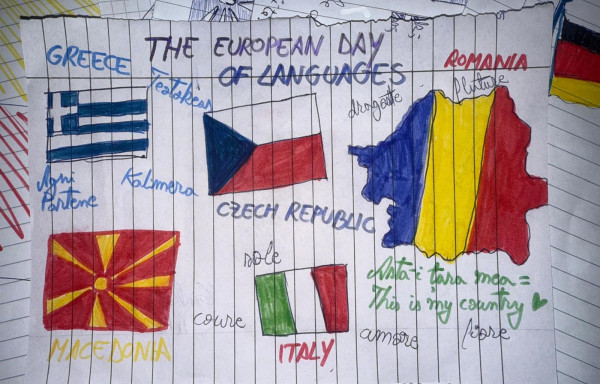 THE EUROPEAN DAY
OF LANGUAGES
GREECE
ROMANIA
dragoste
Agni
Partene
Kalimera
CZECH REPUBLIC
sole
Asta-i țara mea =
This is my country
cuore
amore
fiore
MACEDONIA
ITALY